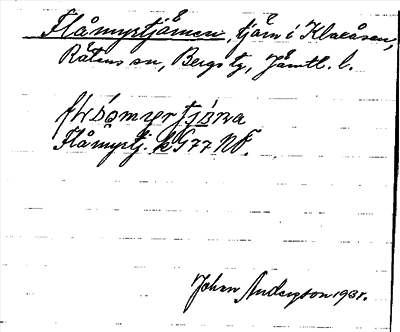 Flåmyrtjärnen, tjärn i Klaxåsen,
Rätans sn, Bergs tg, Jämtl. l.
Flåmyrtj. k G77 NF.
Johan Anderson 1931.